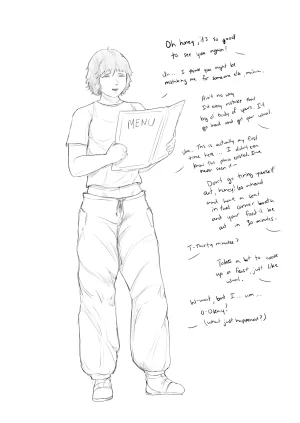 Oh honey, it's so good
to see you again!
Um... I think you might be
mistaking me for someone else ma'am.
Ain't no way
I'd every mistake that
big ol' body of yours. I'll
go head and get your usual.
Um.. This is actually my first
time here... I didn't even
know this place existed. I've
never seen it...
Don't go tiring yourself
out, honey! Go ahead
and have a seat
in that corner booth
and your food'll be
out in 30 minutes.
MENU
T-Thirty minutes?
Takes a bit to cook
up a feast, just like
usual.
W-wait, but I... um...
O-Okay?
(what just happened?)